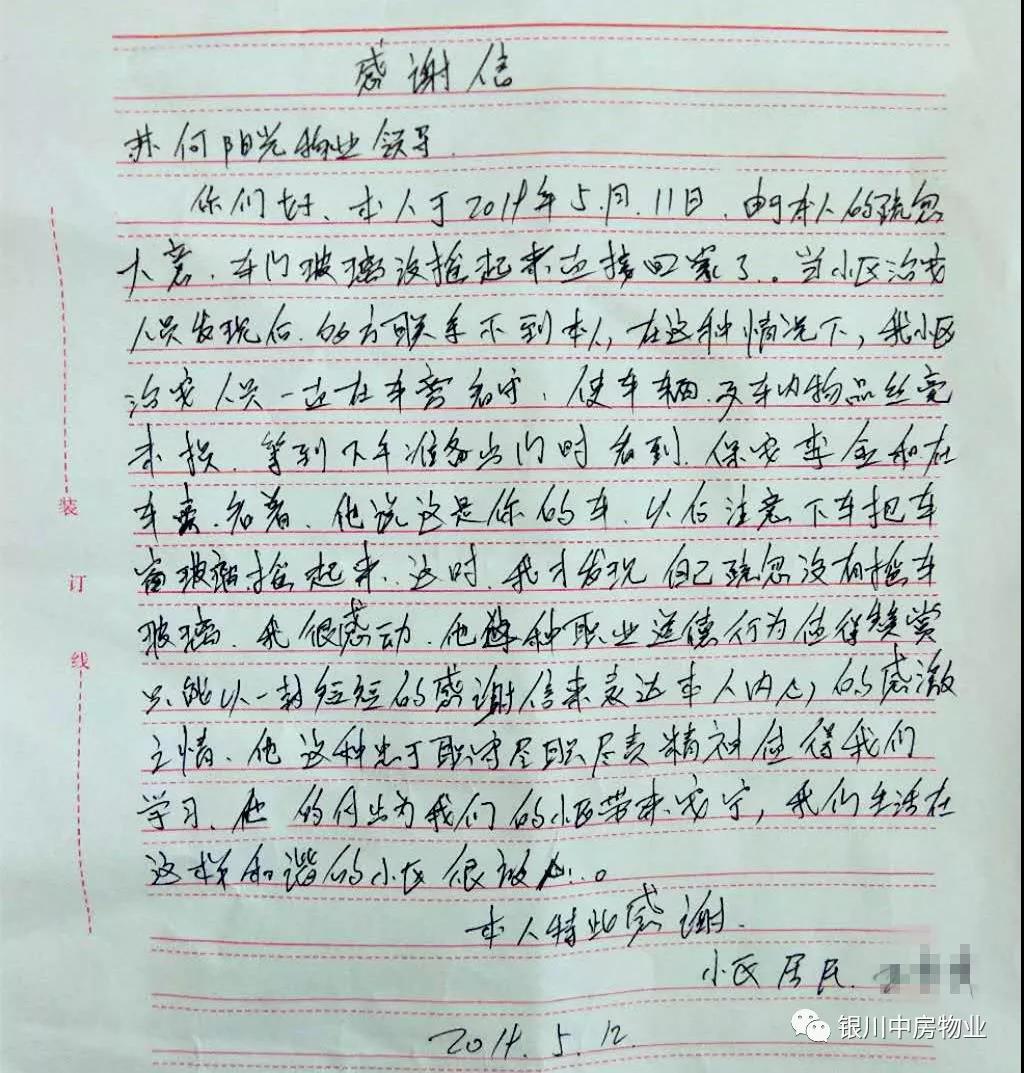 感谢信
苏何阳光物业领导.
你们好、本人于2014年5.月.11日.由于本人的疏忽
大意.车门玻璃没摇起来直接回家了。当小区治安
人员发现后.多方联系不到本人,在这种情况下,我小区
治安人员一直在车旁看守、使车辆.及车内物品丝毫
未损.等到下午准备出门时看到.保安李金和在
车旁.看着.他说这是你的车.以后注意下车把车
窗玻璃摇起来.这时.我才发现自己疏忽没有摇车
玻璃.我很感动.他这种职业道德行为值得赞赏
只能以一封短短的感谢信来表达本人内心的感激
之情.他这种忠于职守尽职尽责精神值得我们
学习.他的付出为我们的小区带来安宁,我们生活在
这样和谐的小区很放心。
本人特此感谢.
小区居民.
2014.5.12.
装
订
线
银川中房物业